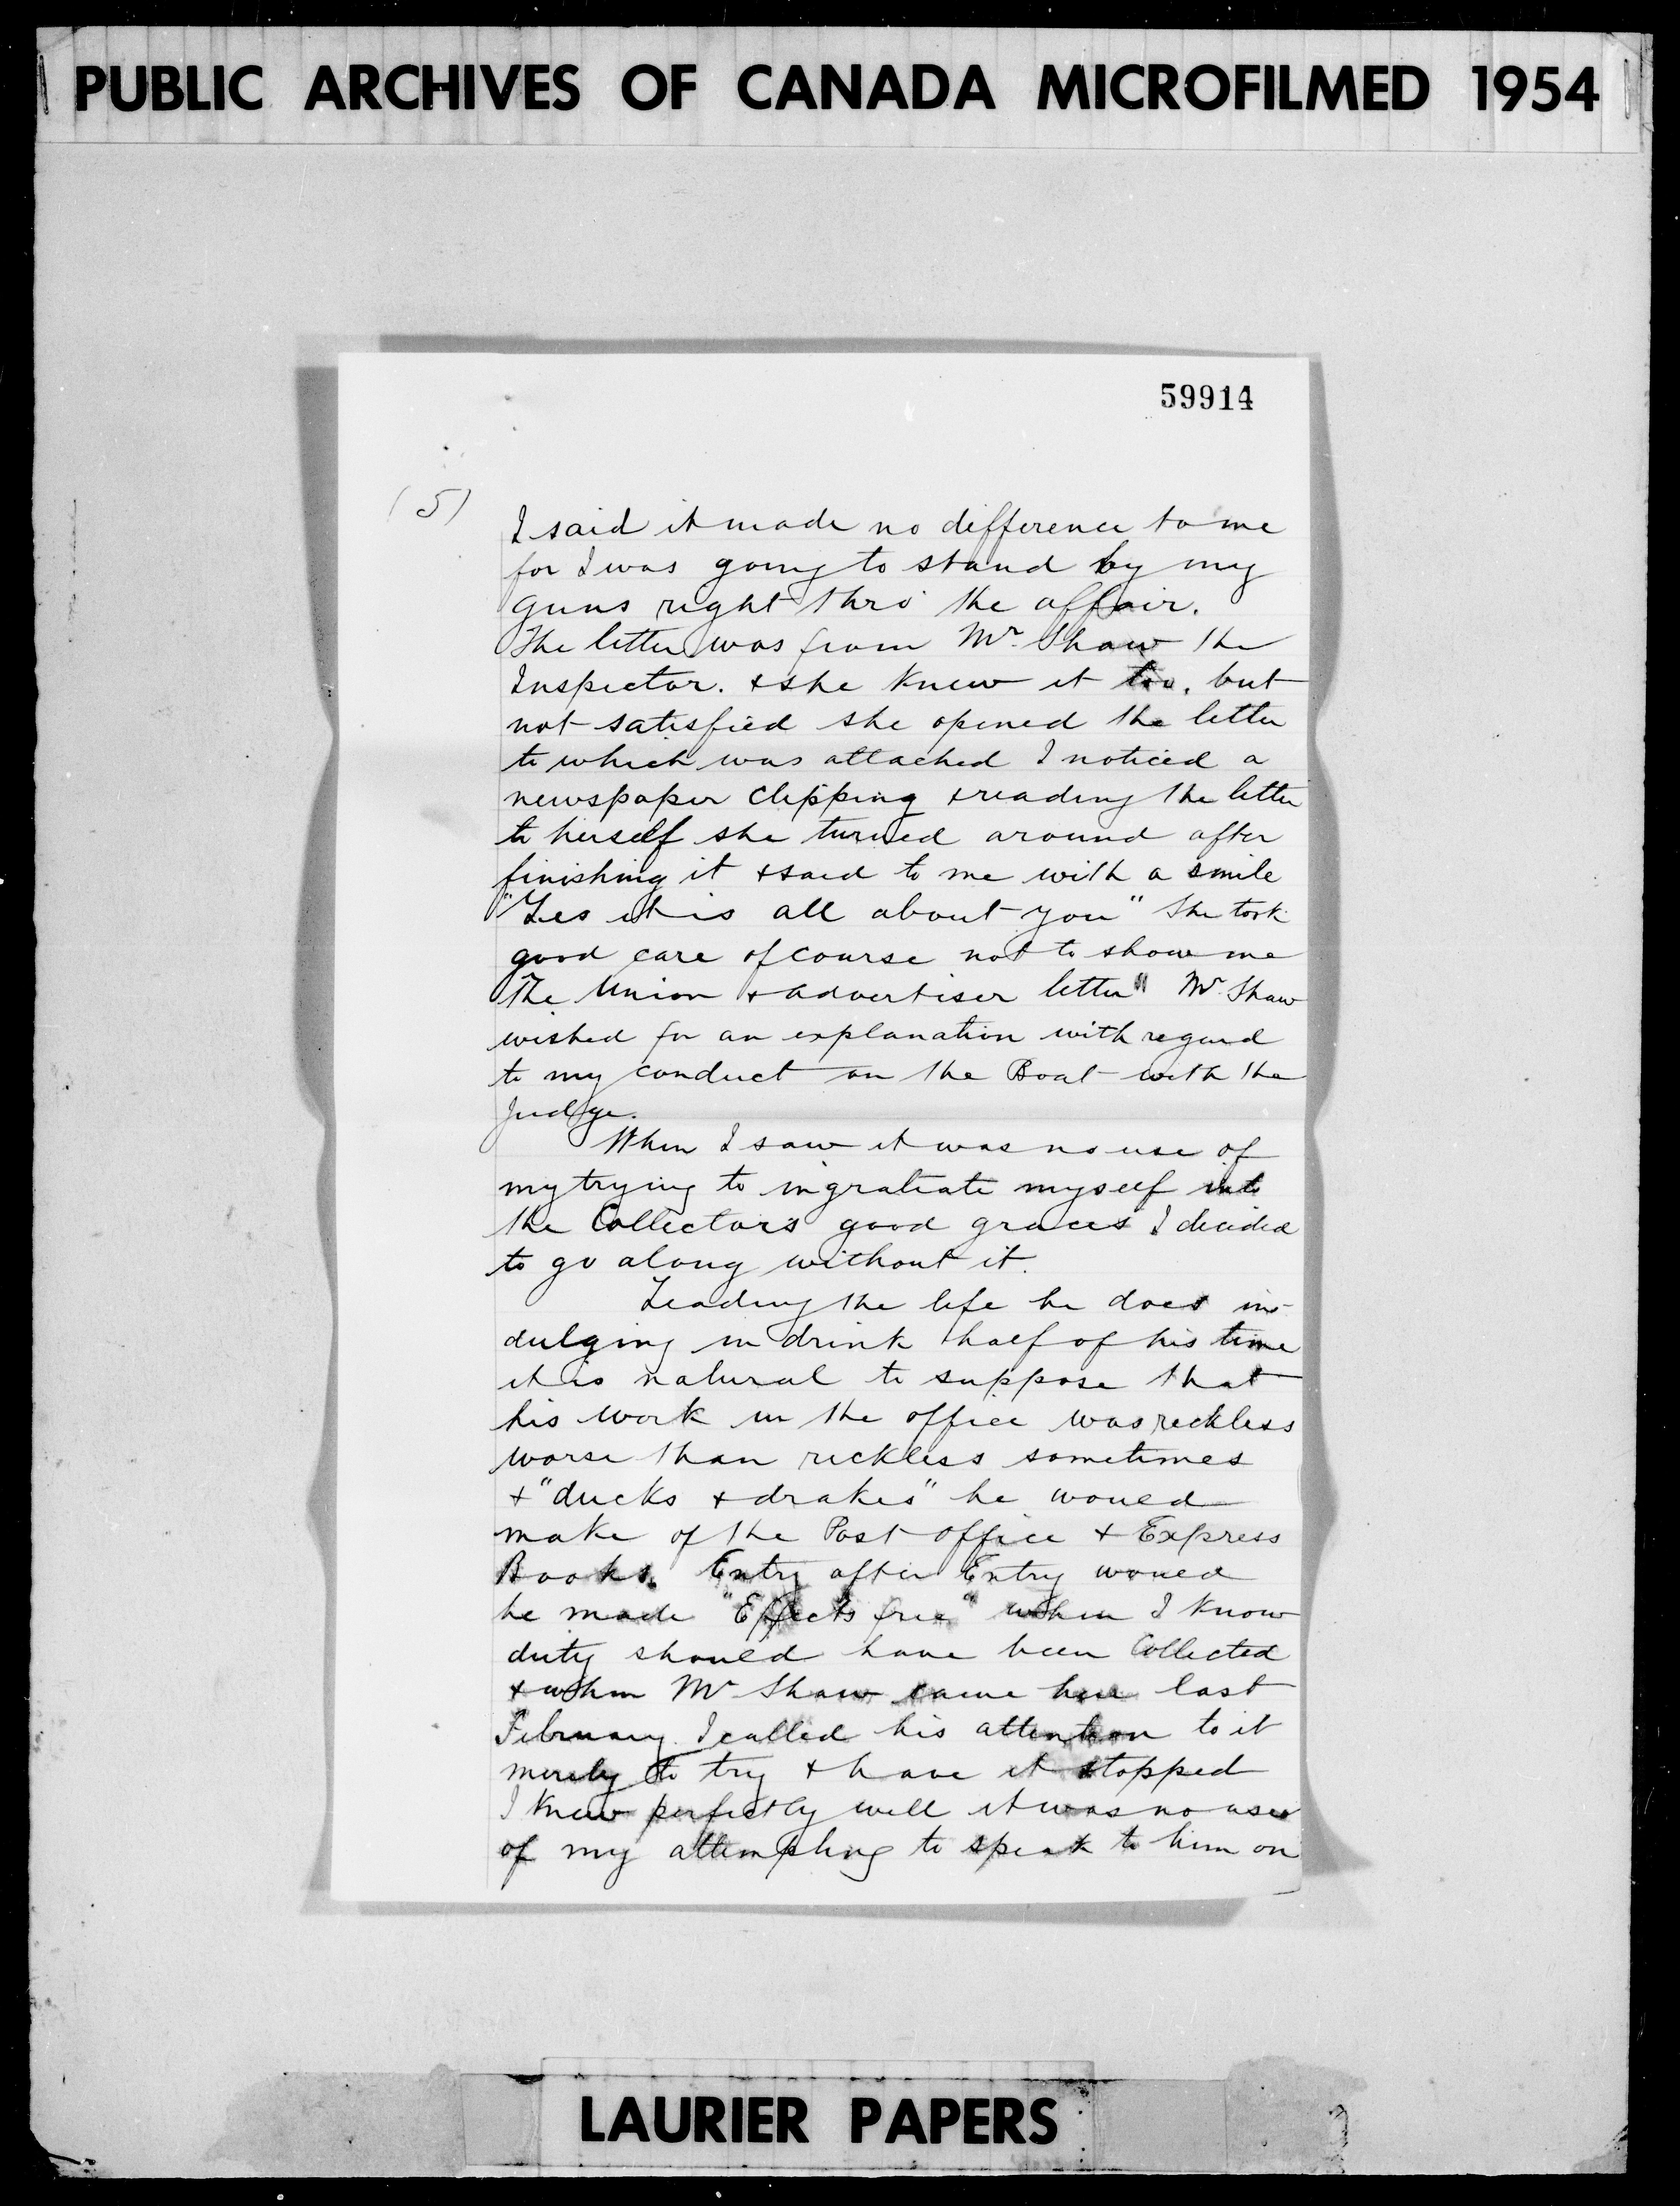 PUBLIC ARCHIVES OF CANADA MICROFILMED 1954
59914
(5)
I said it made no difference to me
for I was going to stand by my
guns right thro' the affair.
The letter was from Mr. Shaw the
Inspector. & she knew it too. but
not satisfied she opened the letter
to which was attached I noticed a
newspaper clipping & reading the letter
to herself she turned around after
finishing it & said to me with a smile
"Yes it is all about you" She took
good care of course not to show me
The Union & Advertiser letter" Mr. Shaw
wished for an explanation with regard
to my conduct on the Boat with the
Judge.
When I saw it was no use of
my trying to ingratiate myself into
the Collectors good graces I decided
to go along without it.
Leading the life he does in-
dulging in drink half of his time
it is natural to suppose that
his work in the office was reckless
worse than reckless sometimes
& "ducks & drakes" he would
make of the Post office & Express
Books. Entry after Entry would
be made "Effects free" when I know
duty should have been Collected
& when Mr Shaw came here last
February I called his attention to it
merely to try & have it stopped
I knew perfectly well it was no use
of my attempting to speak to him on
LAURIER PAPERS